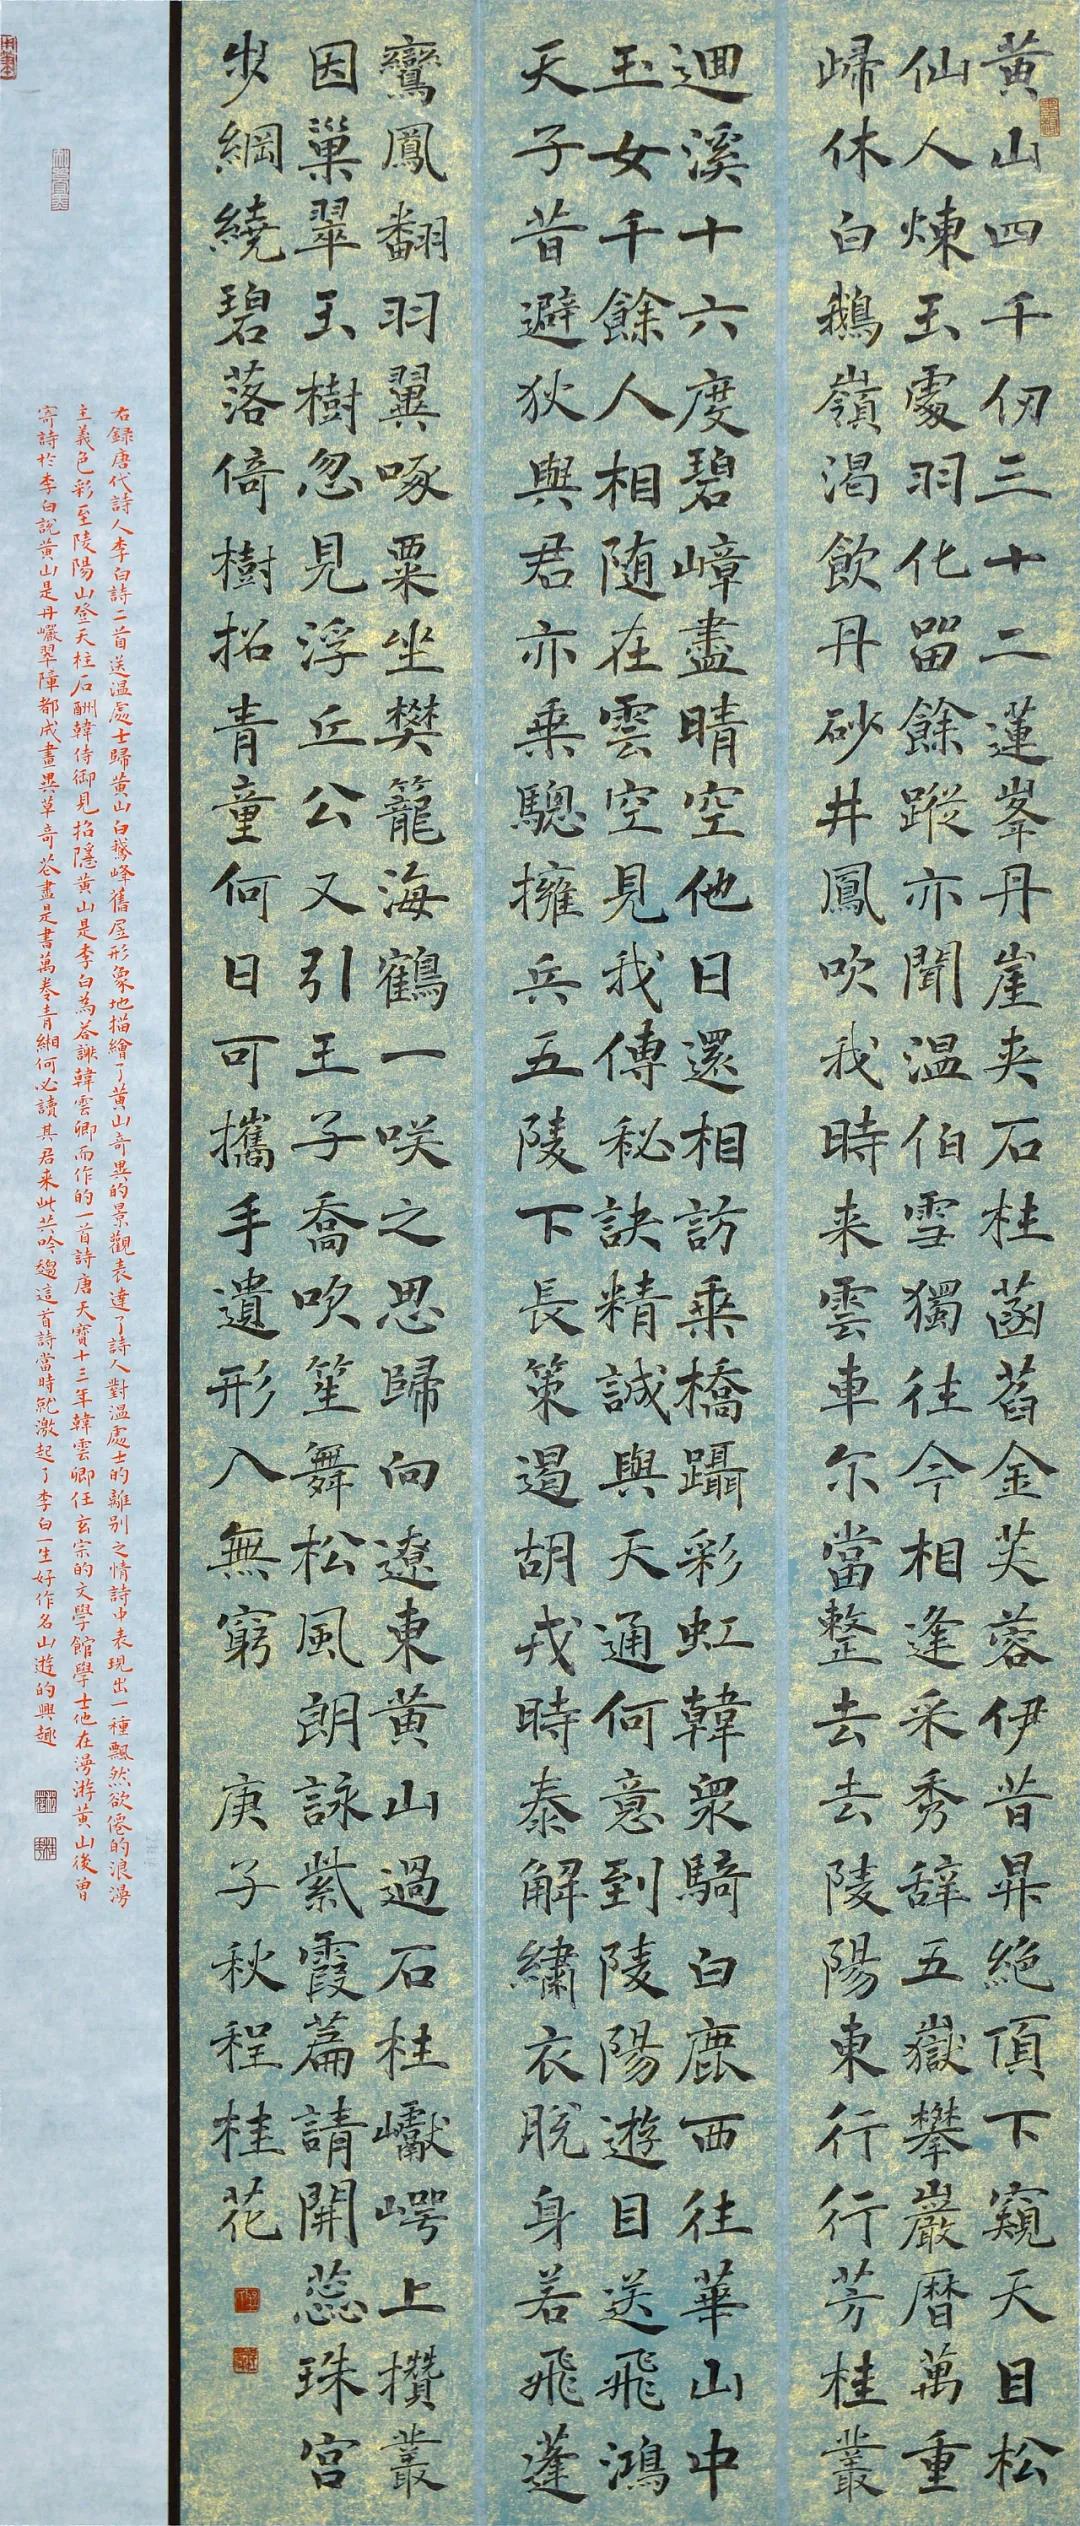 黄山四千仞三十二蓮峯丹崖夾石柱菡萏金芙蓉伊昔昇絕頂下窺天目松
仙人煉玉處羽化留餘蹤亦聞温伯雪獨往今相逢采秀辞五嶽攀巖曆萬重
歸休白鵝嶺渴飲丹砂井鳳吹我時来雲車尔當整去去陵陽東行行芳桂叢
迴溪十六度碧嶂盡晴空他日還相訪乘橋躡彩虹韓衆騎白鹿西往華山中
玉女千餘人相随在雲空見我傳秘訣精誠與天通何意到陵陽遊目送飛鴻
天子昔避狄與君亦乘驄擁兵五陵下長策遏胡戎時泰解繡衣脫身若飛蓬
鸞鳳翻羽翼啄粟坐樊籠海鶴一咲之思歸向遼東黄山過石柱巘崿上攢叢
因巢翠玉樹忽見浮丘公又引王子喬吹笙舞松風朗詠紫霞篇請開蕊珠宮
步綱繞碧落倚樹招青童何日可攜手遺形入無窮 庚子秋程桂花
右録唐代詩人李白詩二首送温處士歸黄山白鵝峰舊居形象地描繪了黄山奇異的景觀表達了詩人對温處士的離别之情詩中表現出一種飄然欲僊的浪漫
主義色彩至陵陽山登天柱石酬韓侍御見招隱黄山是李白為荅謝韓雲卿而作的一首詩唐天寶十三年韓雲卿任玄宗的文學館學士他在漫游黄山後曾
寄詩於李白說黄山是丹巖翠障都成畫異草奇花盡是書萬卷青緗何必讀其君来此共吟趨這首詩當時就激起了李白一生好作名山遊的興趣